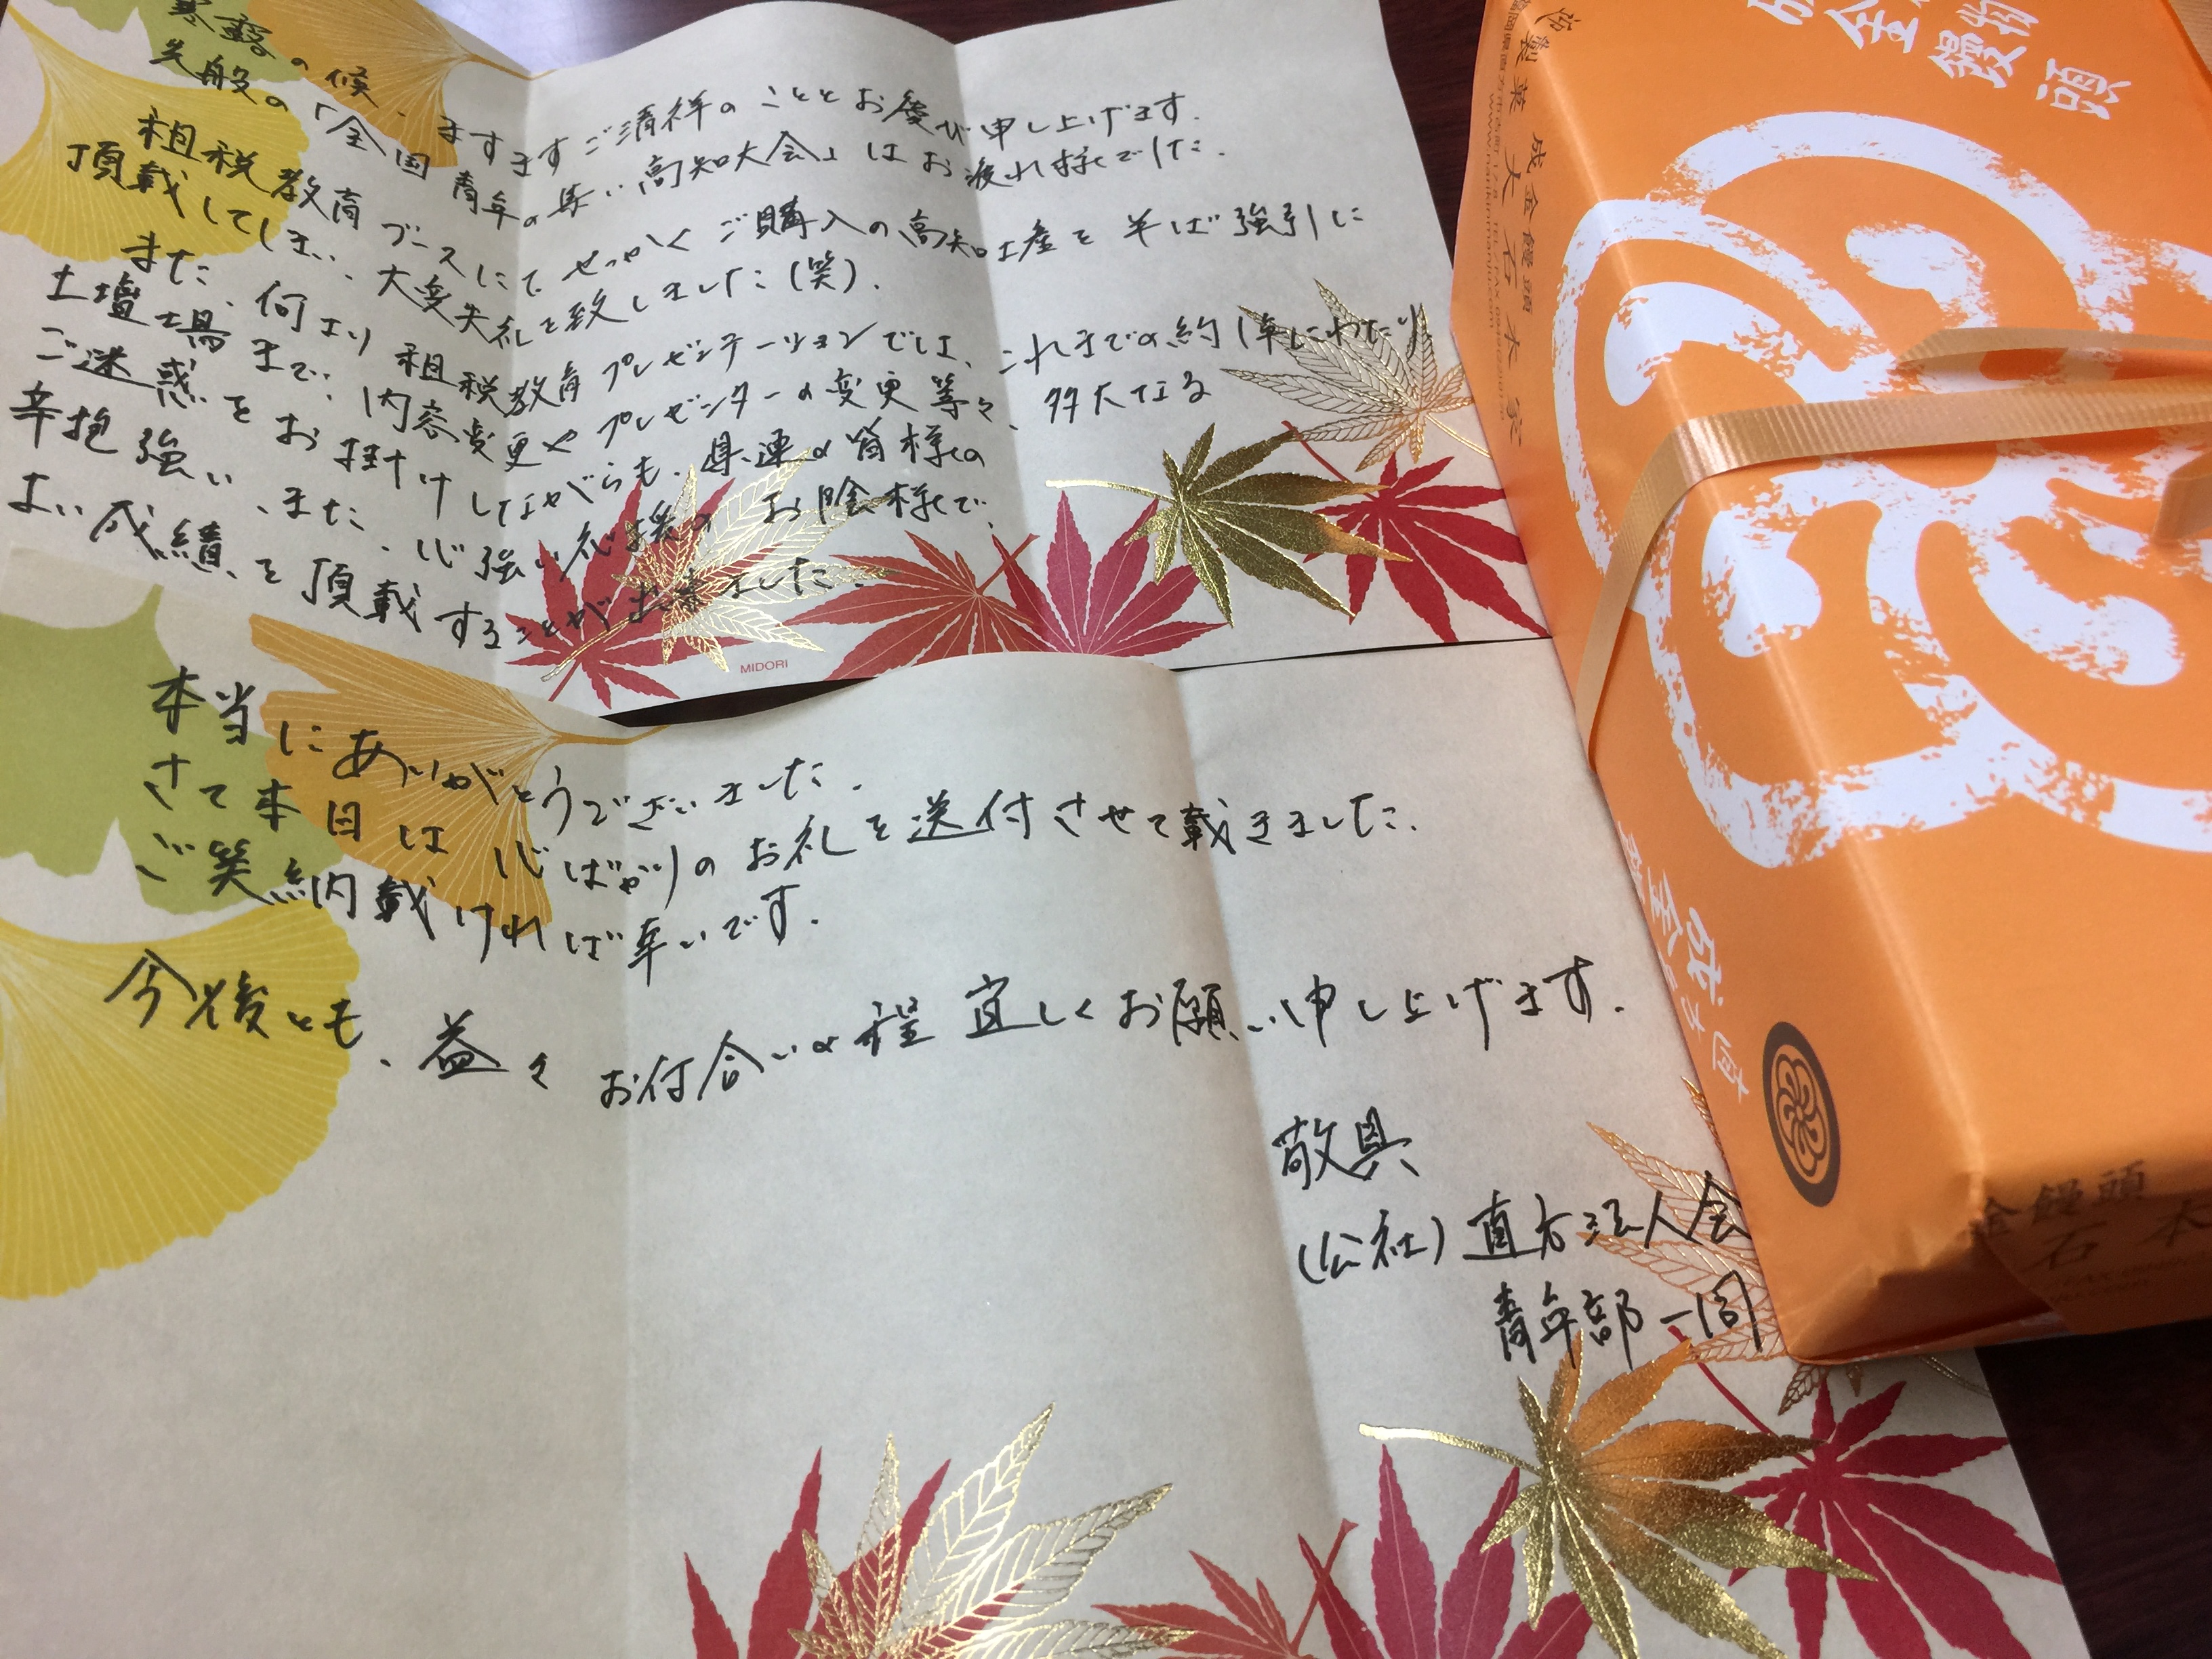 寒露の候、ますますご清祥のこととお慶び申し上げます。
先般の「全国青年の集い高知大会」はお疲れ様でした。
租税教育ブースにてせっかくご購入の高知土産を半ば強引に
頂載してしまい、大変失礼を致しました(笑)。
また、何より租税教育プレゼンテーションでは、これまでの約1年にわたり
土壇場まで、内容変更やプレゼンターの変更等々、多大なる
ご迷惑をお掛けしながらも、県連の皆様の
辛抱強い、また、心強い応援のお陰様で、
よい成績を頂載することが出来ました。
MIDORI
本当にありがとうございました。
さて本日は心ばかりのお礼を送付させて載きました。
ご笑納載ければ幸いです。
今後とも、益々お付合いの程宜しくお願い申し上げます。
敬具
(公社)直方法人会
青年部一同
金饅頭
製菓 成金饅頭
大石本家
直方
成金
金饅頭
石本